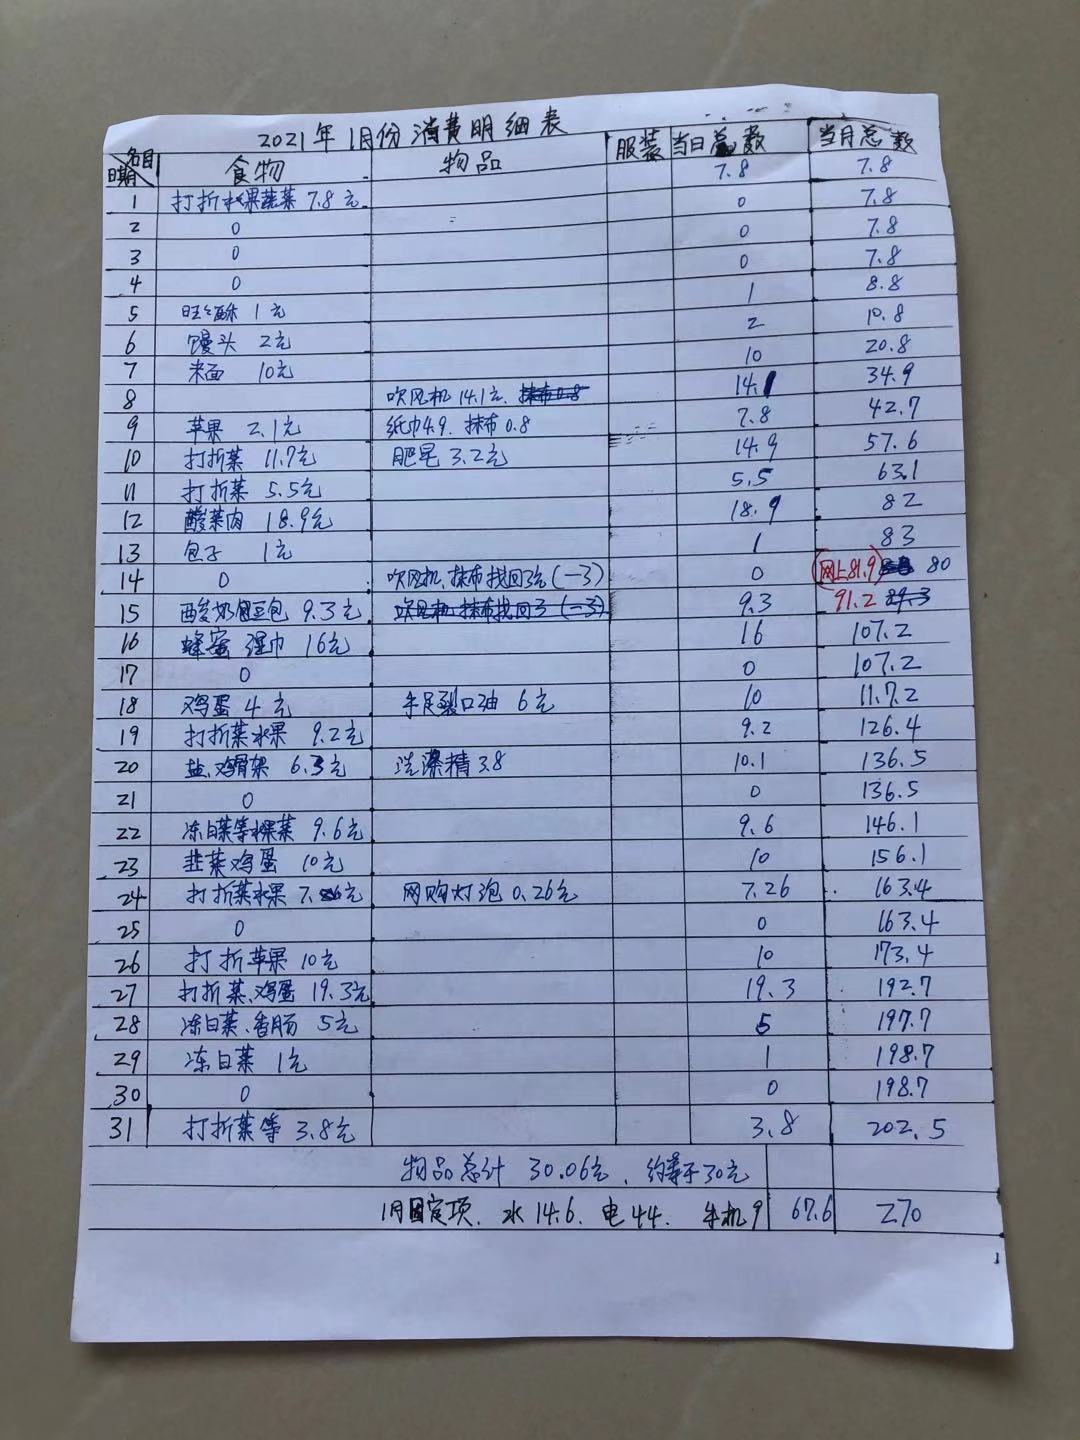 2021年1月份消费明细表
名目 日期 食物 物品 服装 当日总数 当月总数
1 打折水果蔬菜 7.8元 7.8 7.8
2 0 0 7.8
3 0 0 7.8
4 0 0 7.8
5 旺旺酥 1元 1 8.8
6 馒头 2元 2 10.8
7 米面 10元 10 20.8
8 吹风机14.1元. 抹布0.8 14.1 34.9
9 苹果 2.1元 纸巾4.9. 抹布0.8 7.8 42.7
10 打折菜 11.7元 肥皂 3.2元 14.9 57.6
11 打折菜 5.5元 5.5 63.1
12 酸菜肉 18.9元 18.9 82
13 包子 1元 1 83
14 0 吹风机、抹布找回3元(-3) 0 网上81.9 80
15 酸奶豆包 9.3元 吹风机 抹布找回3(-3) 9.3 91.2 89.3
16 蜂蜜 湿巾 16元 16 107.2
17 0 0 107.2
18 鸡蛋 4元 手足裂口油 6元 10 11.7.2
19 打折菜水果 9.2元 9.2 126.4
20 盐、鸡骨架 6.3元 洗澡精3.8 10.1 136.5
21 0 0 136.5
22 冻白菜等水果菜 9.6元 9.6 146.1
23 韭菜鸡蛋 10元 10 156.1
24 打折菜水果 7. 元 网购灯泡0.26元 7.26 163.4
25 0 0 163.4
26 打折苹果10元 10 173.4
27 打折菜、鸡蛋19.3元 19.3 192.7
28 冻白菜、香肠 5元 5 197.7
29 冻白菜 1元 1 198.7
30 0 0 198.7
31 打折菜等 3.8元 3.8 202.5
物品总计 30.06元、约等于30元
1月固定项. 水14.6. 电44. 手机9 67.6 270